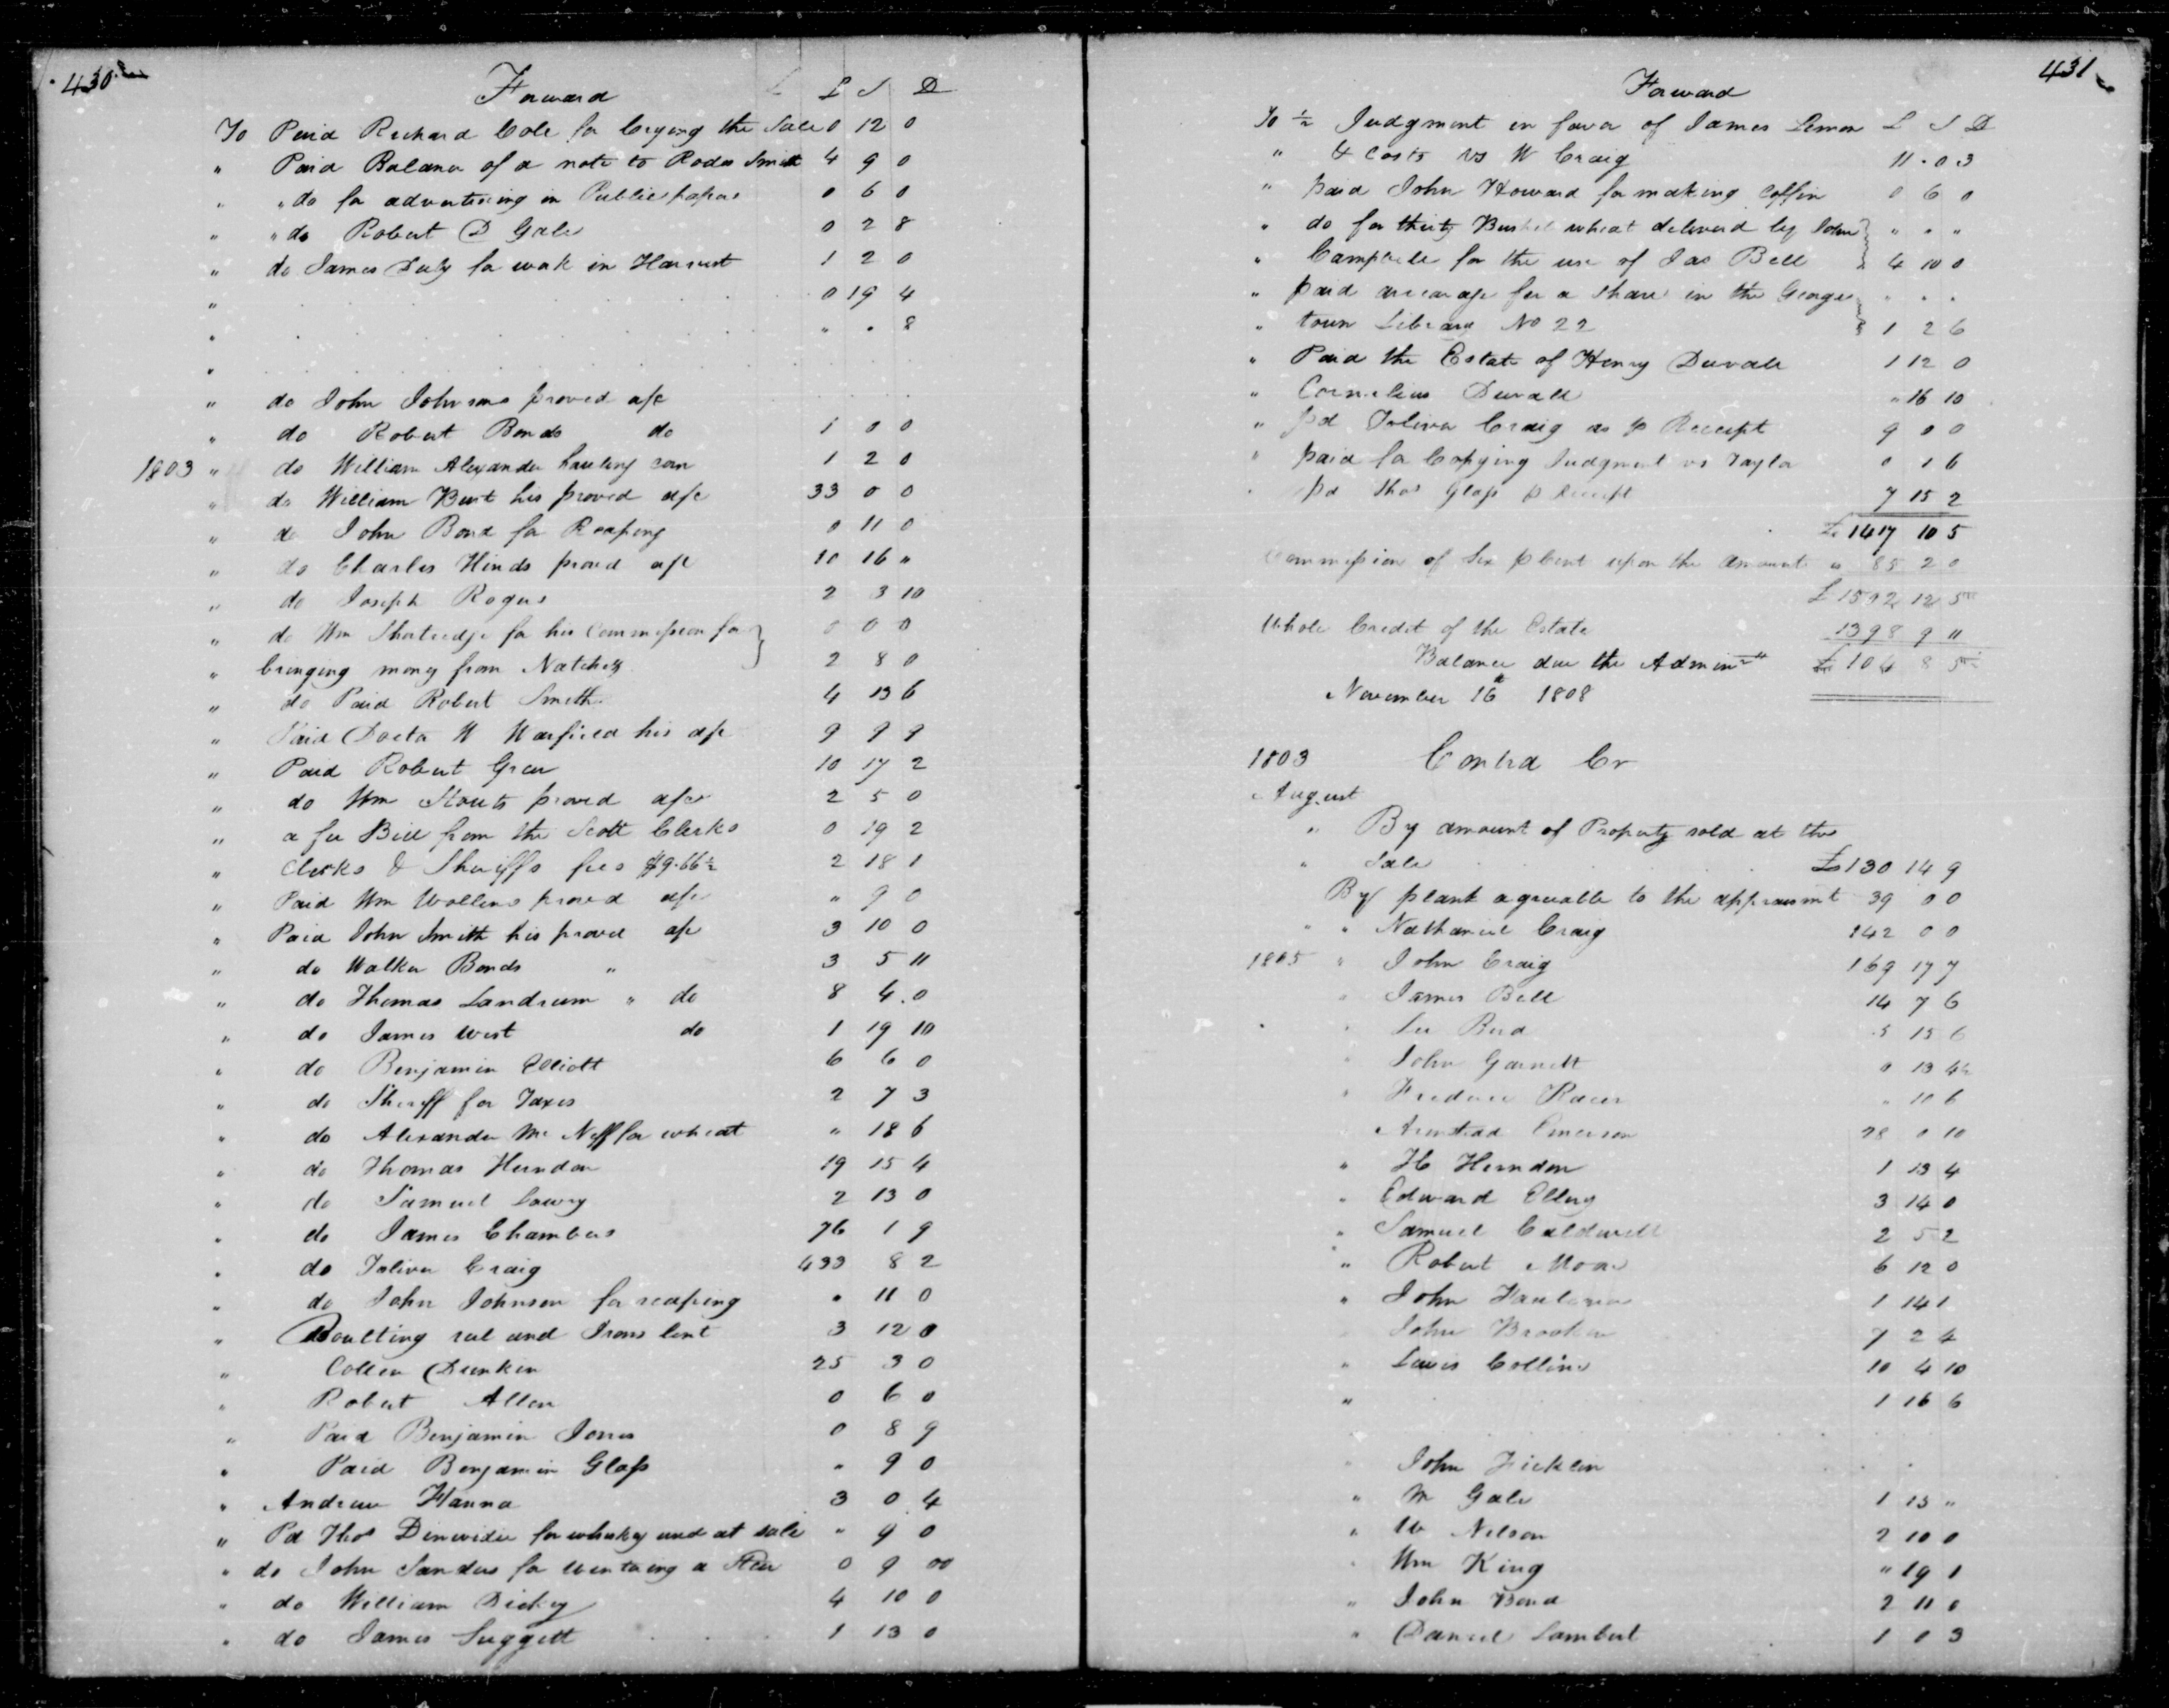 430
Forward £ S D
To Paid Richard Cole for Crying the Sale 0 12 0
" Paid Balance of a note to Rodes Smith 4 9 0
" " do for advertising in Public papers 0 6 0
" " do Robert D Gale 0 2 8
" do James Duly for work in Harvest 1 2 0
" 0 19 4
" " " 8
"
" do John Johnsons proved a/c
" do Robert Bonds do 1 0 0
1803 " do William Alexander hauling corn 1 2 0
" do William Burt his proved a/c 33 0 0
" do John Bond for Reaping 0 11 0
" do Charles Hinds proved a/c 10 16 "
" do Joseph Rogers 2 3 10
" do Wm Shortredge for his Commission for 0 0 0
" bringing money from Natchez 2 8 0
" do Paid Robert Smith 4 13 6
" Paid Doctor W Warfield his a/c 9 9 9
" Paid Robert Greer 10 17 2
" do Wm Stouts proved a/c 2 5 0
" a fee Bill from the Scott Clerks 0 19 2
" Clerks & Sheriffs fees $9.66½ 2 18 1
" Paid Wm Wollens proved a/c " 9 0
" Paid John Smith his proved a/c 3 10 0
" do Walker Bonds " 3 5 11
" do Thomas Landrum " do 8 4 0
" do James West do 1 19 10
" do Benjamin Elliott 6 6 0
" do Sheriff for Taxes 2 7 3
" do Alexander Mc Neff for wheat " 18 6
" do Thomas Herndon 19 15 4
" do Samuel Lowry 2 13 0
" do James Chambers 76 1 9
" do Toliver Craig 433 8 2
" do John Johnson for reaping " 11 0
" Boulting reel and Irons lent 3 12 0
" Collen Dunkin 25 3 0
" Robert Allen 0 6 0
" Paid Benjamin Jones 0 8 9
" Paid Benjamin Glass " 9 0
" Andrew Hanna 3 0 4
" Pd Thos Dinwidie for whiskey used at sale " 9 0
" do John Sanders for wintering a Steer 0 9 00
" do William Dickey 4 10 0
" do James Suggett 1 13 0
431
Forward
To ½ Judgment in favor of James Lemon £ S D
" & Costs vs W Craig 11 0 3
" paid John Howard for making Coffin 0 6 0
" do for thirty Bushel wheat delivered by John " " "
" Campbell for the use of Jas Bell 4 10 0
" paid arrearage for a share in the George " " "
" town Library No 22 1 2 6
" Paid the Estate of Henry Duvall 1 12 0
" Cornelius Duvall " 16 10
" pd Toliver Craig as p Receipt 9 0 0
" paid for Copying Judgment vs Taylor 0 1 6
" pd Thos Glass p Receipt 7 15 2
£ 1417 10 5
Commission of Six p Cent upon the Amount " 85 2 0
£ 1502 12 5
Whole Credit of the Estate 1398 9 "
Balance due the Admin £ 104 8 5
November 16th 1808
1803 Contra Cr
August
" By amount of Property sold at the
" Sale £130 14 9
By plank agreeable to the appraismt 39 0 0
" " Nathaniel Craig 142 0 0
1805 " John Craig 169 17 7
" James Bell 14 7 6
" Lee Bird 5 15 6
" John Garnett 0 13 4½
" Racer " 10 6
" Armstead Emerson 28 0 10
" H Herndon 1 13 4
" Edward Ellery 3 14 0
" Samuel Caldwell 2 5 2
" Robert Moore 6 12 0
" John 1 14 1
John Brooken 7 2 4
" Lewis Collins 10 4 10
" 1 16 6
" John Ficklin
" M Gale 1 13 "
" W Nelson 2 10 0
" Wm King " 19 1
" John Bond 2 11 0
" Daniel Lambert 1 0 3